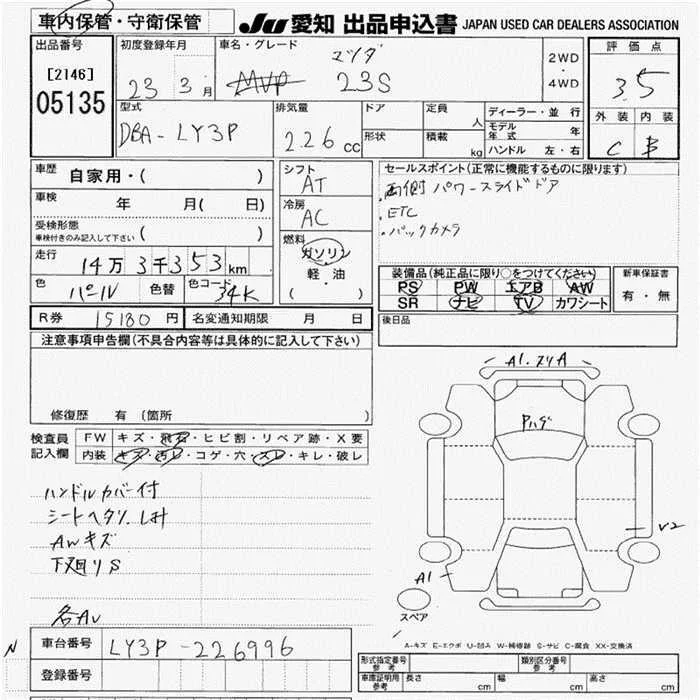 車内保管・守衛保管 JU 愛知 出品申込書 JAPAN USED CAR DEALERS ASSOCIATION
出品番号 初度登録年月 車名・グレード マツダ 2WD・4WD 評価点
[2146] 23 3月 MVP 23S 3.5
05135
型式 排気量 ドア 定員 人 ディーラー・並行 外装 内装
DBA-LY3P 2.26 cc 形状 積載 kg モデル年式 年 C B
ハンドル 左・右
車歴 自家用・( ) シフト AT セールスポイント(正常に機能するものに限ります)
車検 年 月( 日) 冷房 AC 両側パワースライドドア
受検形態 ( ) ・ETC
車検付きのみ記入して下さい ・バックカメラ
走行 14万3千353km 燃料 ガソリン
軽・油
( )
色 パール 色替 色コード 34K
装備品(純正品に限り○をつけてください) 新車保証書
PS PW エアB AW 有・無
SR ナビ TV カワシート
R券 15180円 名変通知期限 月 日 後日品
注意事項申告欄(不具合内容等は具体的に記入して下さい)
修復歴 有(箇所 )
検査員記入欄 FW キズ・飛石・ヒビ割・リペア跡・X要
内装 キズ・汚レ・コゲ・穴・スレ・キレ・破レ
ハンドルカバー付
シートヘタリ
AWキズ
下廻りS
A1
Pハゲ
A1
スペア
A-キズ E-エクボ U-凹み W-補修跡 S-サビ C-腐食 XX-交換済
車台番号 LY3P-226996
登録番号
形式指定番号 参考 類別区分番号 参考
車庫証明用 参考 長さ cm 幅 cm 高さ cm